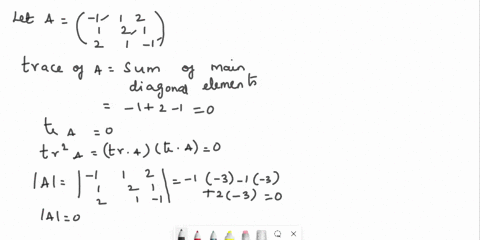 Let A = (-1 1 2
1 2 1
2 1 -1)
trace of A = Sum of main
diagonal elements
= -1+2-1 =0
tr A = 0
tr² A = (tr.A)(tr.A) = 0
|A| = |-1 1 2
1 2 1
2 1 -1| = -1(-3)-1(-3)
+2(-3) = 0
|A| = 0